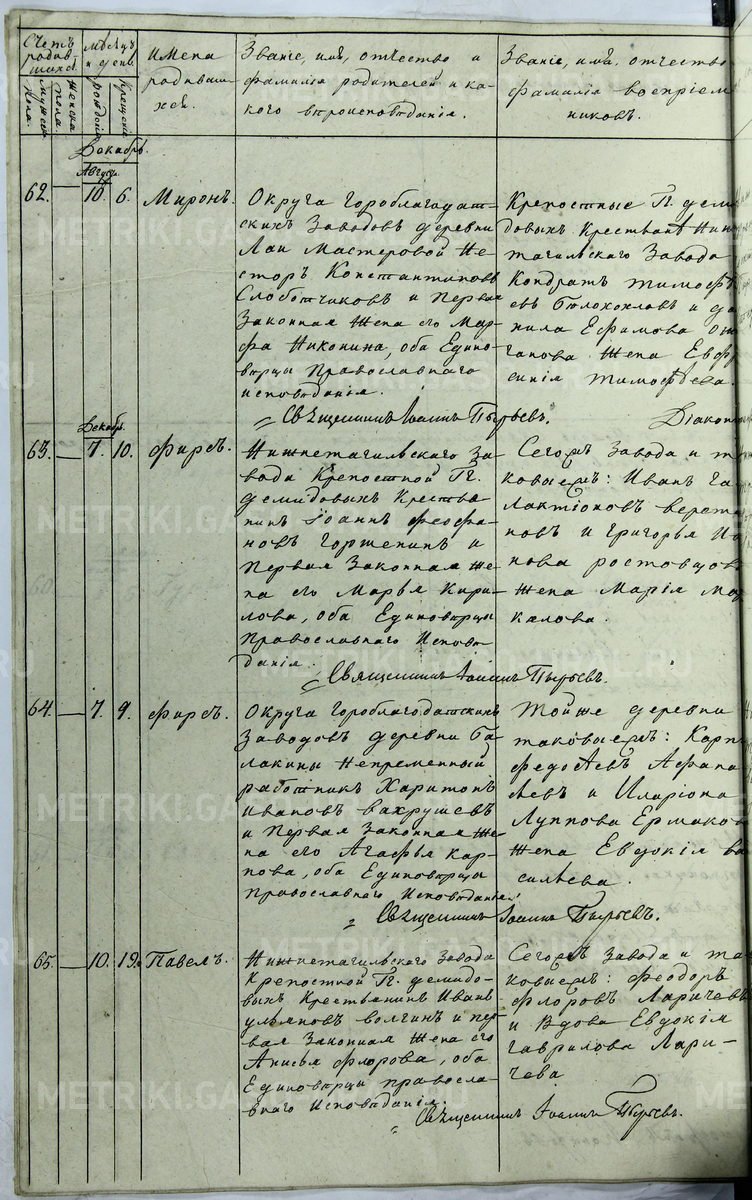 Счетъ родившихся.
Мужеска пола.
Женска пола.
мѣсяцъ и день.
рожденія
Крещенія
имена
родивши-
хся.
Званіе, имя, отчество и
фамилія родителей и ка-
кого вѣроисповѣданія.
Званіе, имя, отчество
фамилія воспріем
никовъ.
Декабрь.
Август.
62. — 10. 6. Миронъ.
Округа Гороблагодат-
скихъ Заводовъ деревни
Лаи Мастеровой Не-
сторъ Константиновъ
Слоботчиковъ и Первая
Законная Жена его Мар-
фа Никонина, оба Едино-
вѣрцы Православнаго
исповѣданія.
Крепостные Гг. деми
довыхъ Крестьянѣ Ниж
тагильскаго Завода
Кондратъ тимофѣ
евъ Болохохловъ и да
нила Ефимова
Жена Евфр
синія тимофѣева.
Священникъ Іоаннъ Пырьевъ. Діаконъ
Декабрь.
63. — 7. 10. Фирсъ.
Нижнетагильскаго За-
вода Крепостной Гг.
демидовыхъ Крестья-
нинъ Іоаннъ Феофа-
новъ Горшенинъ и
Первая Законная Же-
на его Марья Кири-
лова, оба Единоверцы
Православнаго Исповѣ-
данія.
Сегожъ Завода и та
ковыежъ: Иванъ Га
лактіоновъ верета
новъ и Григорья Ив
нова ростовцов
Жена Марія Ма
калова.
Священникъ Іоаннъ Пырьевъ.
64. — 7. 9. Фирсъ.
Округа Гороблагодатскихъ
Заводовъ деревни Ба-
лакины Непременный
работникъ Харитонъ
ивановъ вахрушевъ
и Первая Законная Же-
на его Агафья Кар-
пова, оба Единоверцы
Православнаго Исповѣданія.
Тойже деревни
таковыежъ: Карп
Федосѣевъ Афана
сьевъ и Иларіона
Луппова Ермаков
Жена Евдокія ва
сильева.
Священникъ Іоаннъ Пырьевъ.
65. — 10. 19. Павелъ.
Нижнетагильскаго Завода
Крепостной Гг. демидо-
выхъ Крестьянинъ Иванъ
ульяновъ волгинъ и пер-
вая Законная Жена его
Анисья Флорова, оба
Единоверцы правосла-
внаго Исповѣданія.
Сегожъ Завода и та
ковыежъ: Феодоръ
Флоровъ Ларичевъ
и Вдова Евдокія
гаврилова Лари-
чева
Священникъ Іоаннъ Пырьевъ.